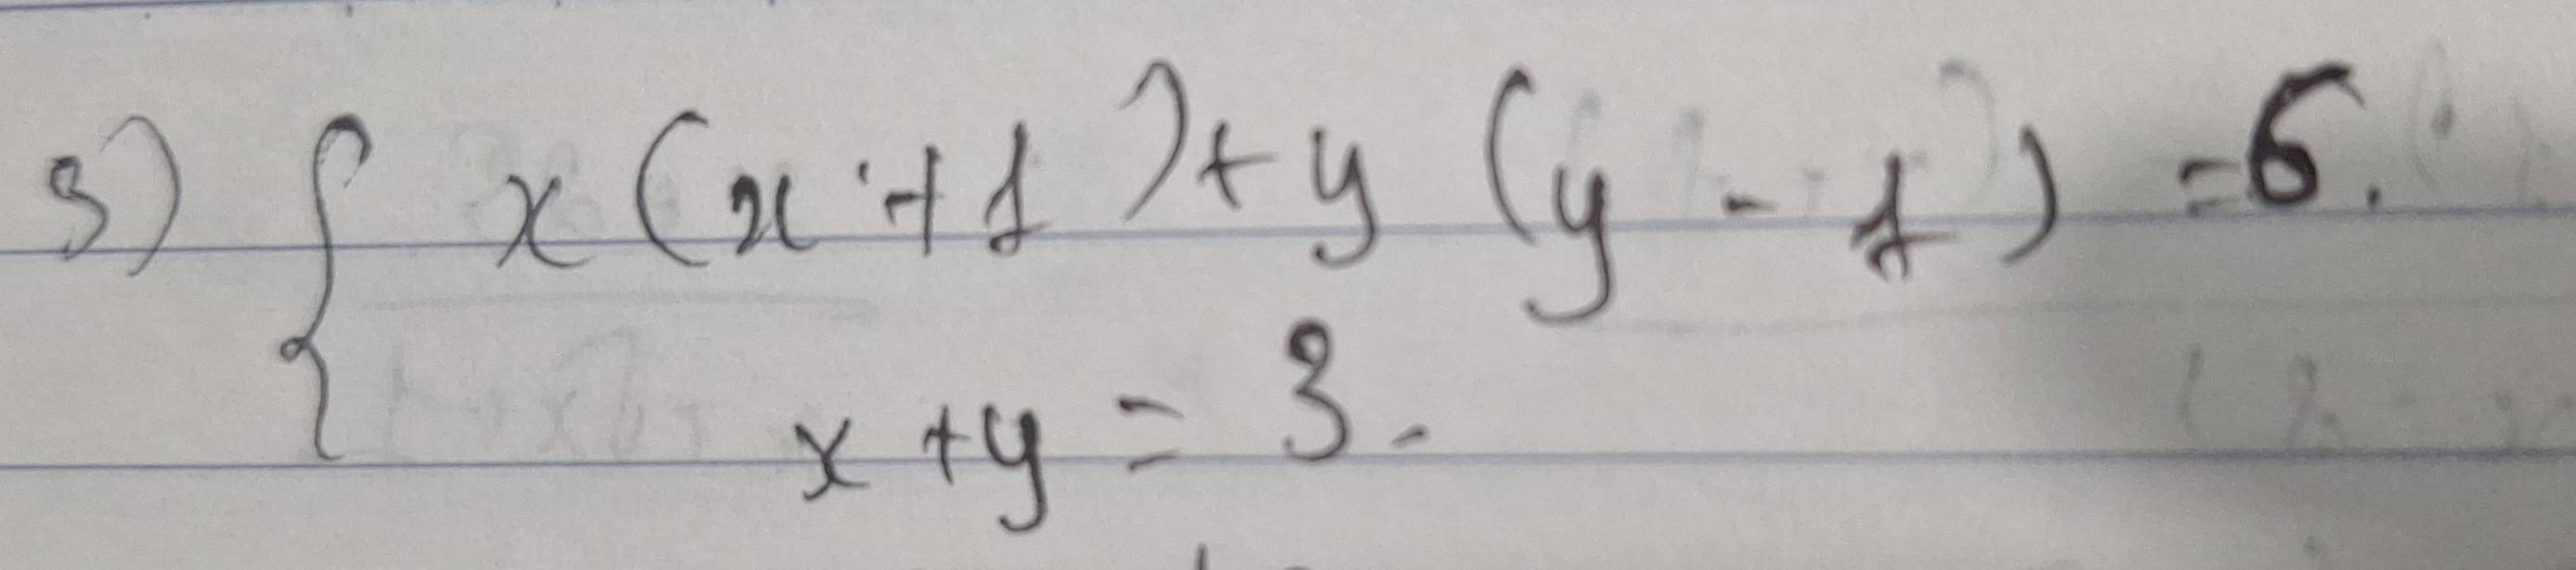 s) { x(x+1)+y(y-1)=6.
x+y=3.